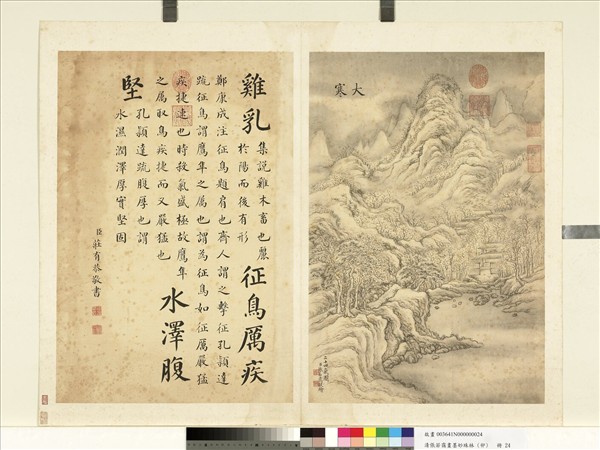 大寒
雞乳
集說雞木畜也麗
於陽而後有形
征鳥厲疾
鄭康成注征鳥題肩也齊人謂之擊征孔頴達
疏征鳥謂鷹隼之屬也謂為征鳥如征厲嚴猛
疾捷速也時殺氣盛極故鷹隼
之屬取鳥疾捷而又嚴猛也
水澤腹
堅
孔頴達疏腹厚也謂
水濕潤澤厚實堅固
臣莊有恭敬書
故畫 003641N000000024
清張若靄畫墨妙珠林（卯） 冊 24